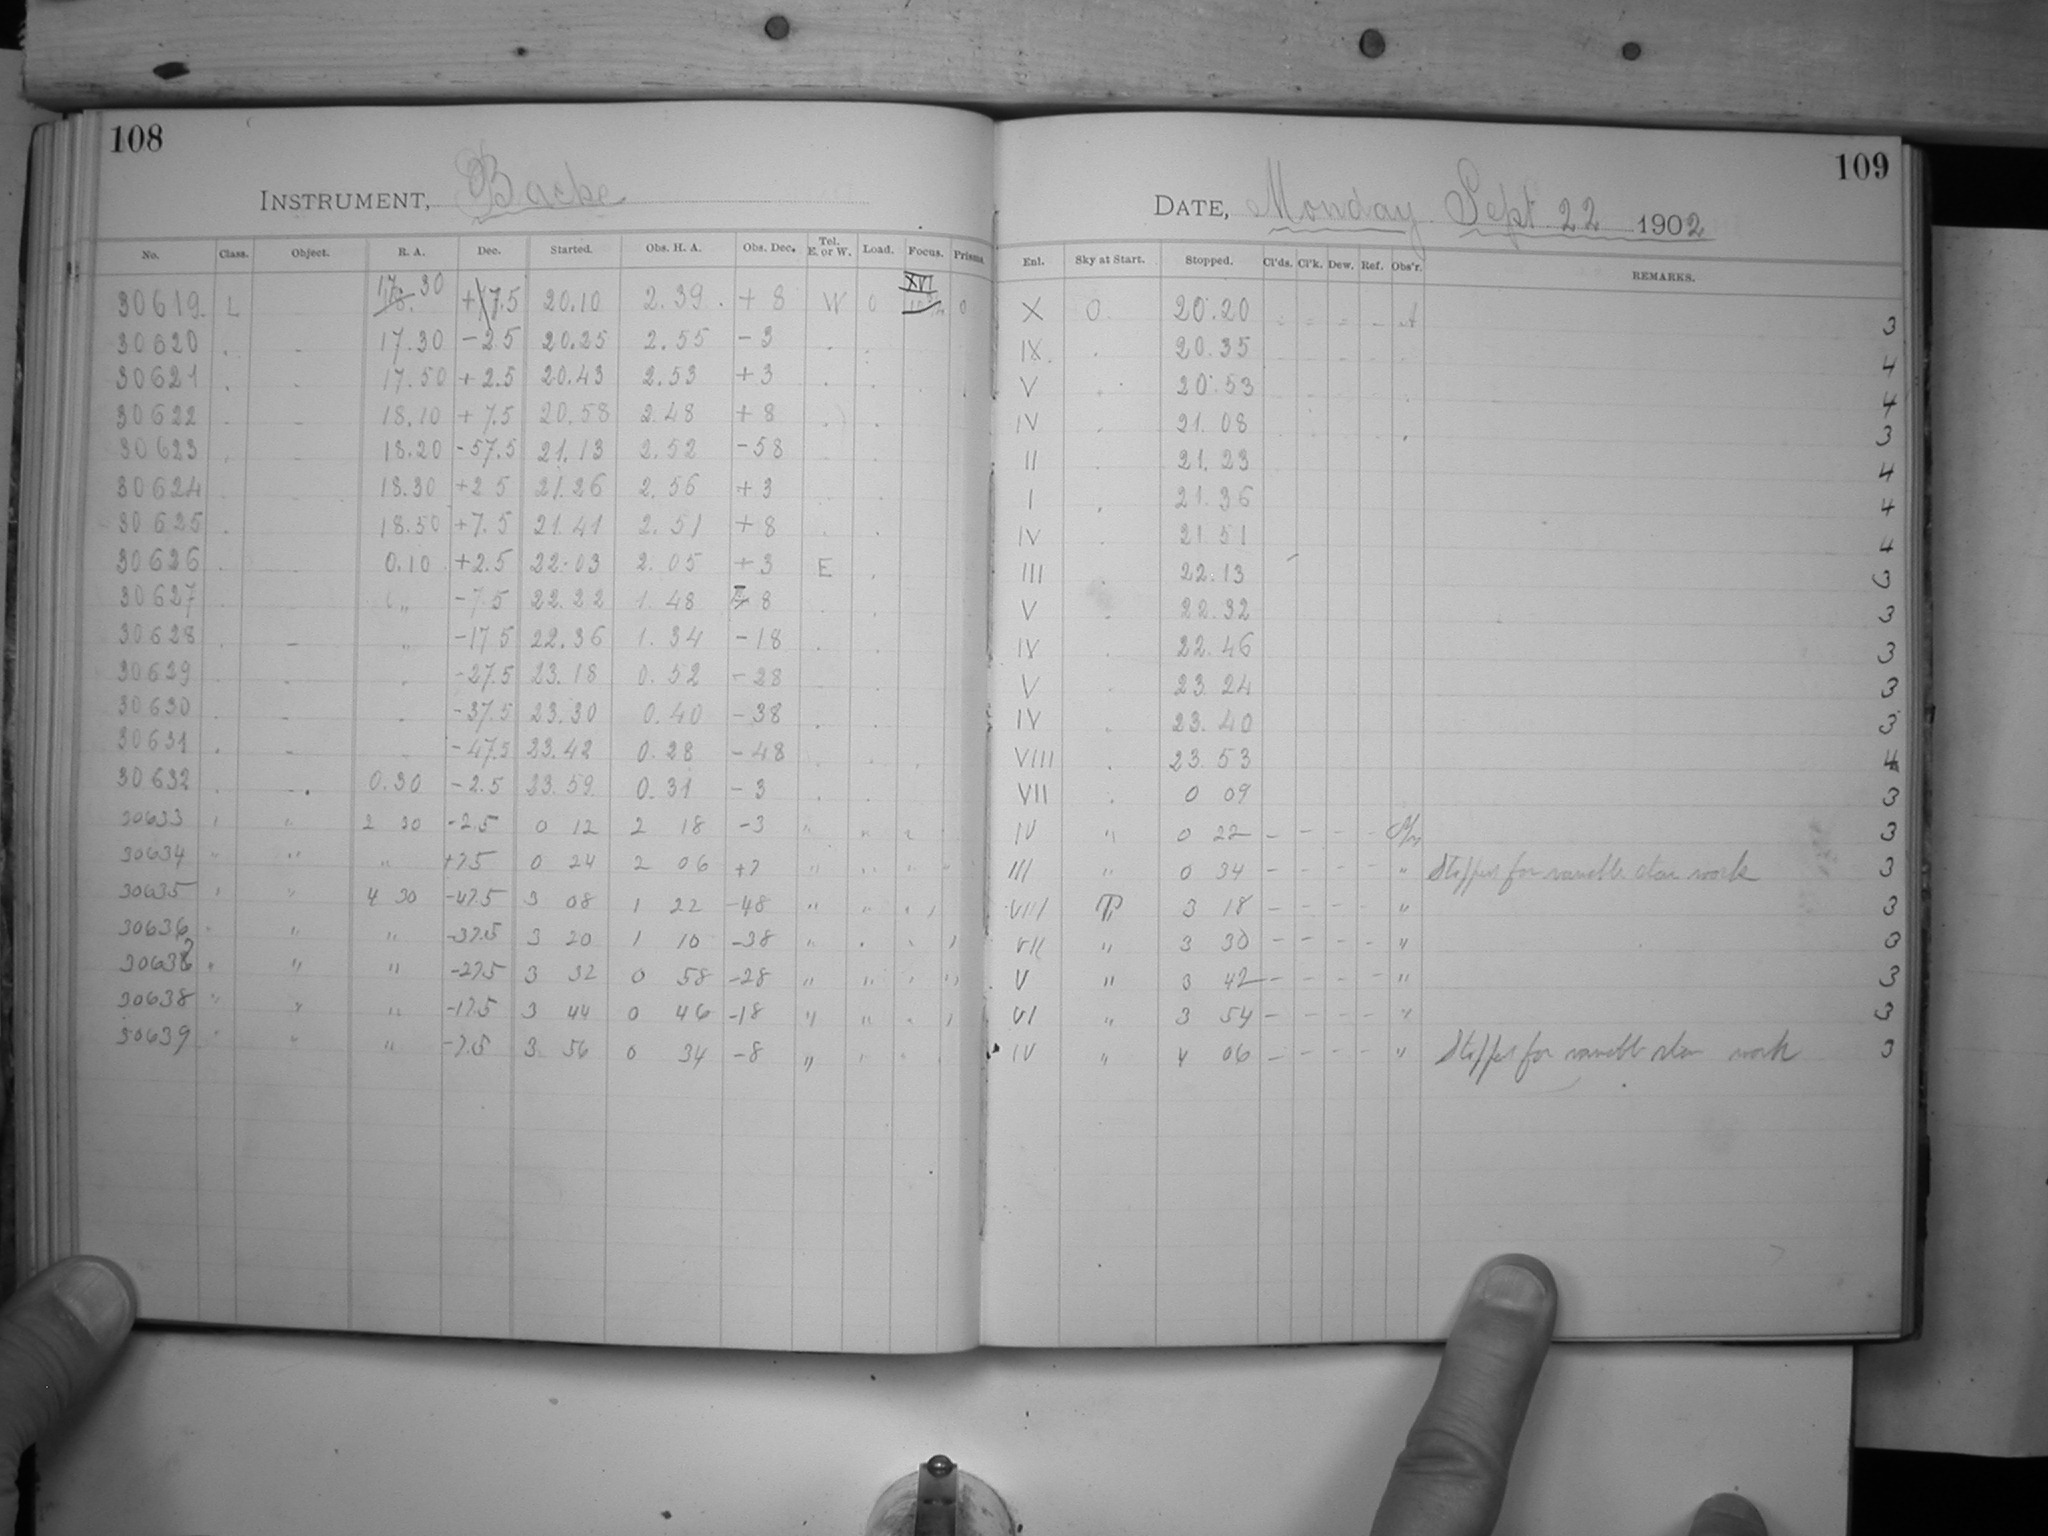 108
INSTRUMENT, Bache
No. Class. Object. R. A. Dec. Started. Obs. H. A. Obs. Dec. Tel. E. or W. Load. Focus. Prisms.
XVI
30619 L 17.30 +7.5 20.10 2.39 +8 W 0 0
30620 17.30 -2.5 20.25 2.55 -3
30621 17.50 +2.5 20.43 2.53 +3
30622 18.10 +7.5 20.58 2.48 +8
30623 18.20 -57.5 21.13 2.52 -58
30624 18.30 +2.5 21.26 2.56 +3
30625 18.50 +7.5 21.41 2.51 +8
30626 0.10 +2.5 22.03 2.05 +3 E
30627 " -7.5 22.22 1.48 - 8
30628 " -17.5 22.36 1.34 -18
30629 -27.5 23.18 0.52 -28
30630 -37.5 23.30 0.40 -38
30631 -47.5 23.42 0.28 -48
30632 0.30 -2.5 23.59 0.31 -3
30633 " 2 30 -2.5 0 12 2 18 -3 " " "
30634 " " " +7.5 0 24 2 06 +7 " " " "
30635 " " 4 30 -47.5 3 08 1 22 -48 " "
30636 " " " -37.5 3 20 1 10 -38 "
" " " -27.5 3 32 0 58 -28 " " "
30638 " " " -17.5 3 44 0 46 -18 " "
30639 " " " -7.5 3 56 0 34 -8 "
109
DATE, Monday Sept 22 1902
Enl. Sky at Start. Stopped. Cl'ds. Cl'k. Dew. Ref. Obs'r. REMARKS.
X 0 20.20 - - - - A 3
IX 20.35 4
V 20.53 4
IV 21.08 3
II 21.23 4
I 21.36 4
IV 21.51 4
III 22.13 3
V 22.32 3
IV 22.46 3
V 23 24 3
IV 23.40 3
VIII 23 53 4
VII 0 09 3
IV " 0 22 - - - - 3
III " 0 34 - - - - " Stopped for variable star work 3
VIII 3 18 - - - - " 3
VII " 3 30 - - - - " 3
V " 3 42 - - - - " 3
VI " 3 54 - - - - " 3
IV " 4 06 - - - - " Stopped for variable star work 3